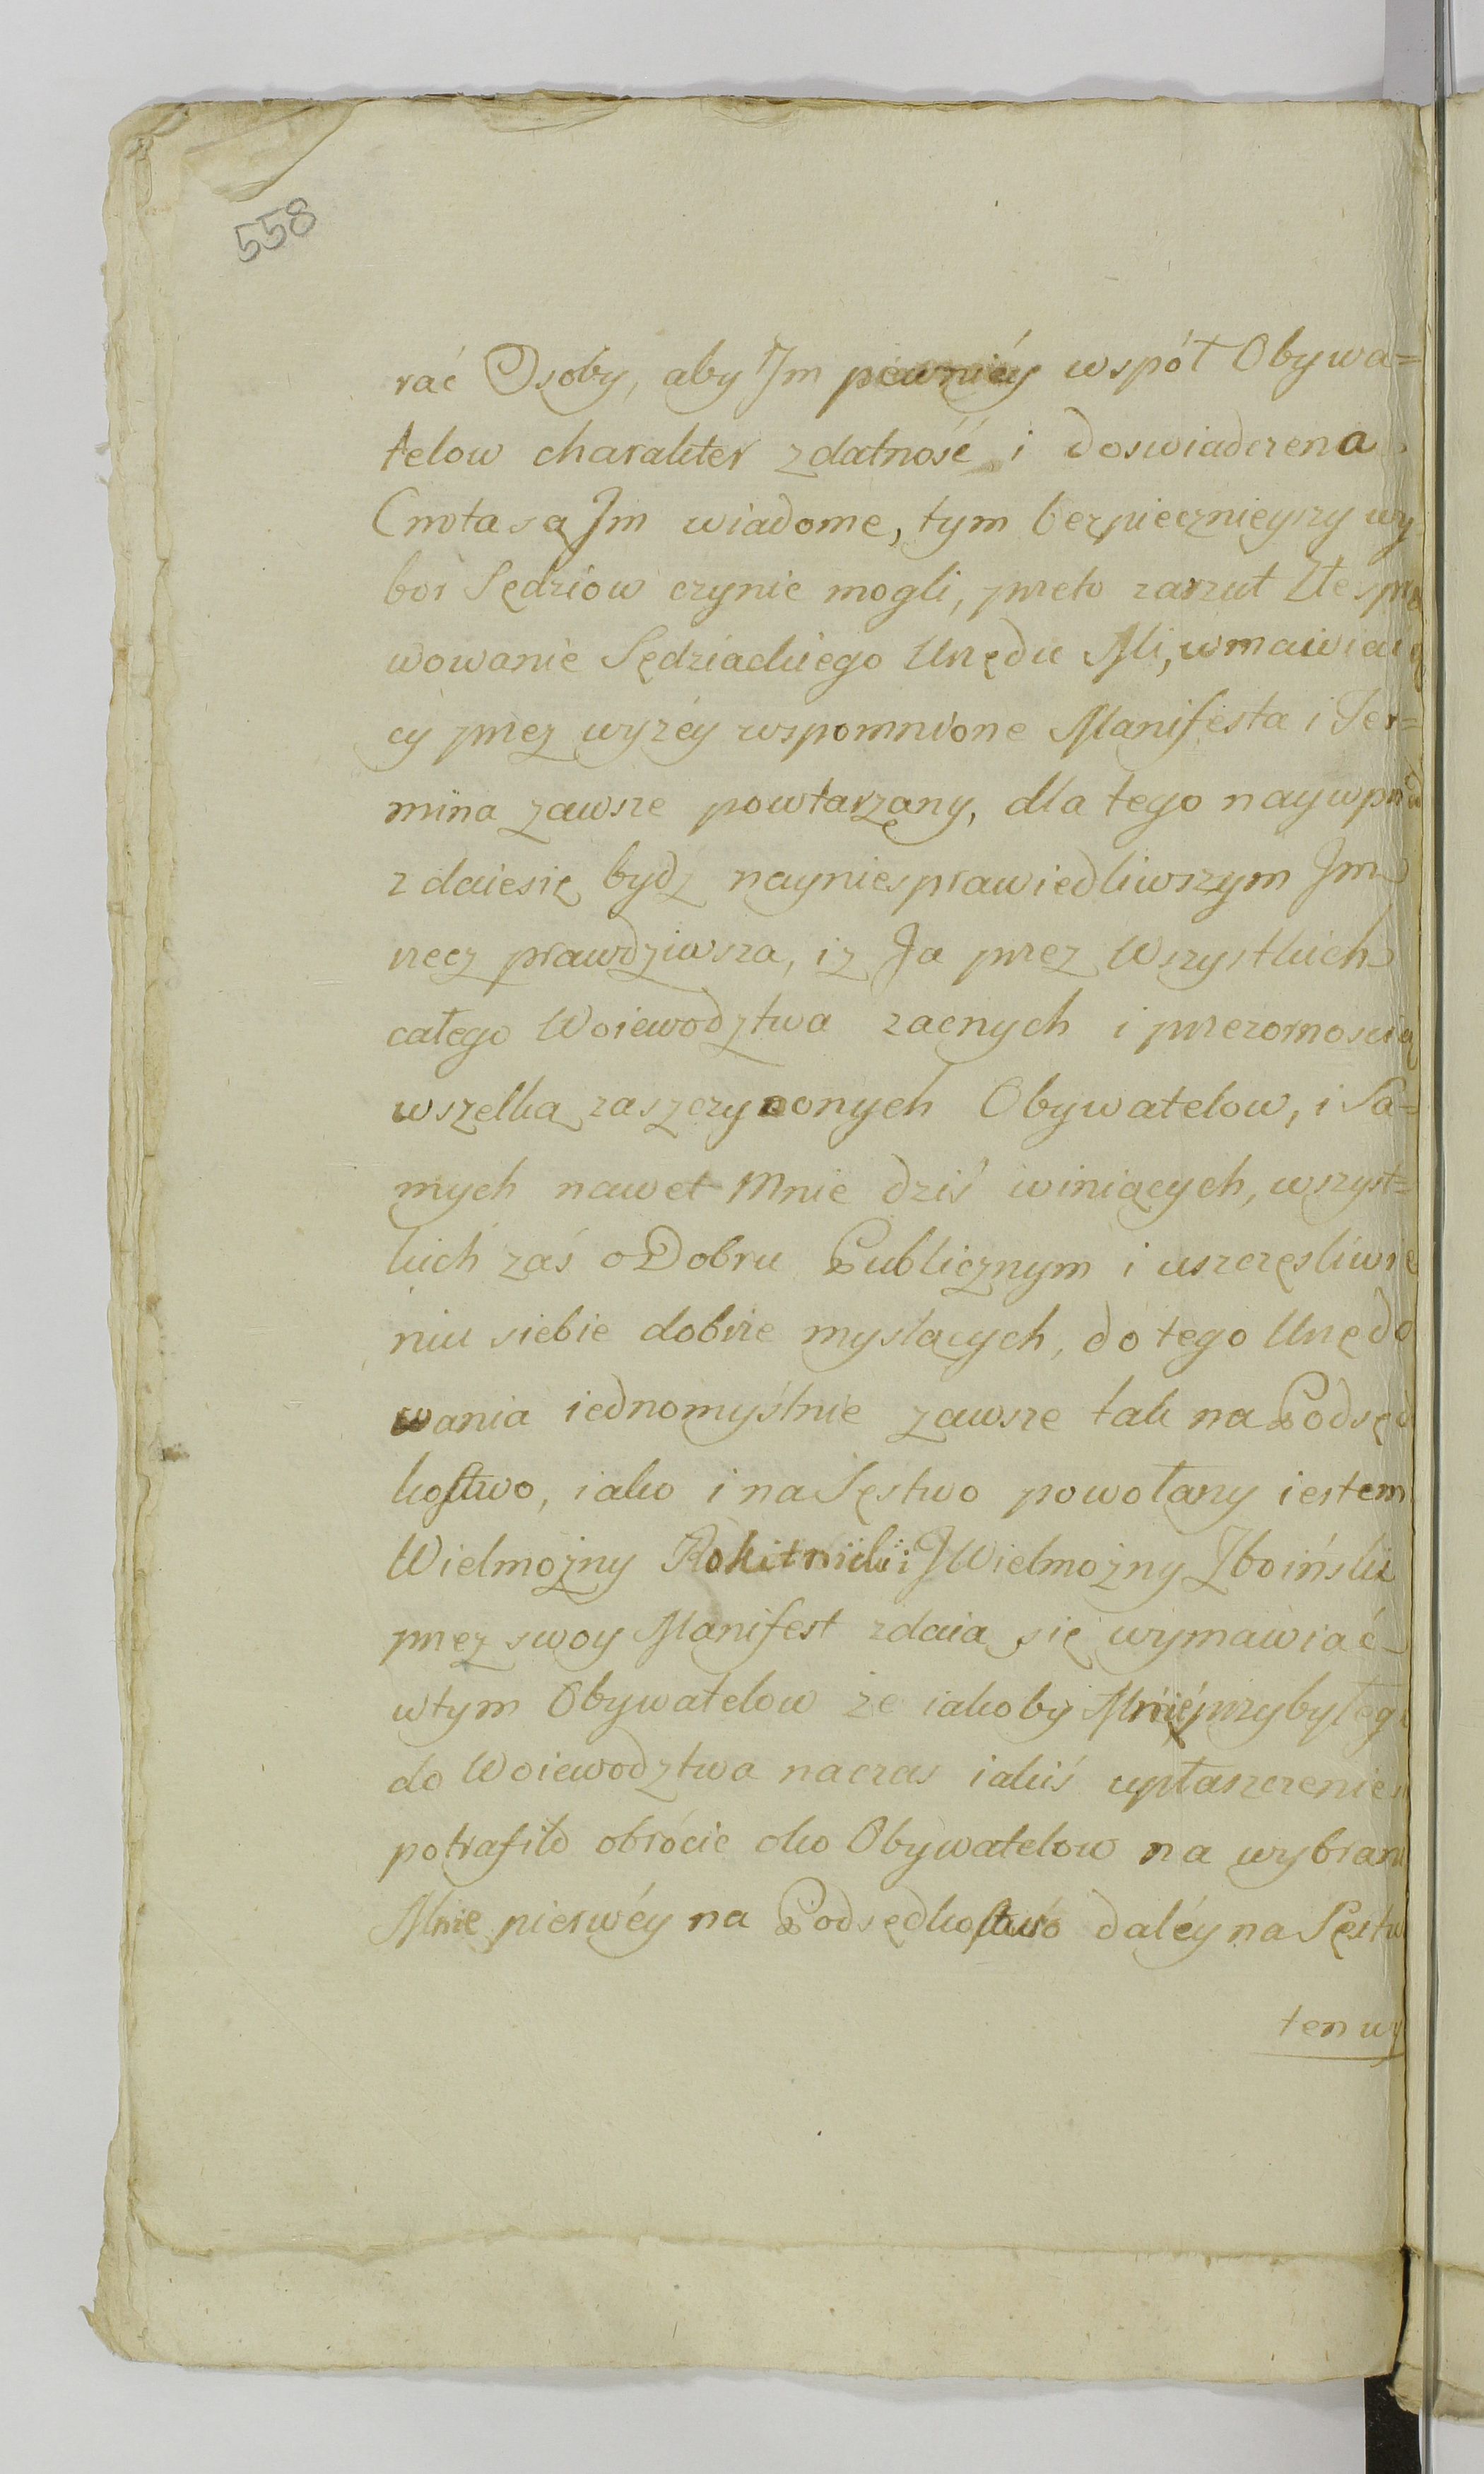 558
rać Osoby, aby Im pewniéy współ Obywa=
telow charakter zdatność i doswiadczena
Cnota są Im wiadome, tym bezpiecznieyszy wy
bor Sędziow czynic mogli, przeto zarzut Złe spra
wowanie Sędziackiego Urzędu Mi, wmawiaią
cy przez wyzéy wspomnione Manifesta i Ter=
mina zawsze powtarzany, dla tego naywprzód
zdaiesię bydz nayniesprawiedliwszym Im
rzecz prawdziwsza, iz Ja przez Wszystkich
całego Woiewodztwa zacnych i przezornoscią
wszelką zaszczyconych Obywatelow, i Sa=
mych nawet Mnie dziś winiących, wszyst=
kich zaś o Dobru Publicznym i uszczęsliwie
niu siebie dobrze myslących, do tego Urzędo
wania iednomyślnie zawsze tak na Podsęd
kostwo, iako i na Sęstwo powołany iestem
Wielmożny Rokitnicki i JWielmożny Zboiński
przez swoy Manifest zdaia się wymawiać
wtym Obywatelow że iakoby Mnie przybyłego
do Woiewodztwa naczas iakiś upłaszczenie
potrafiło obrócic oko Obywatelow na wybranie
Mnie pierwéy na Podsędkostwo daléy na Sęstwo
ten wy